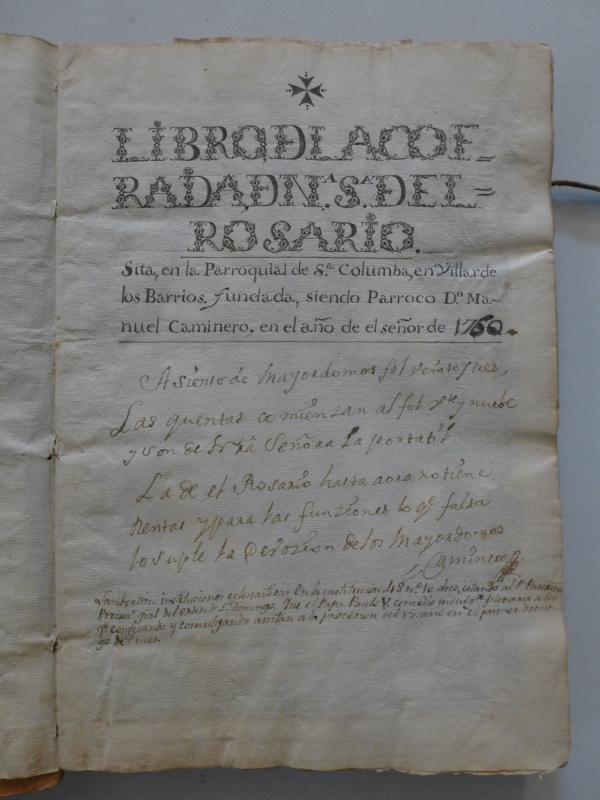 LIBRO, DE LA COF=
RAIDA, DE N.ᴬ S.ᴬ DEL=
ROSARIO.
Sita, en la Parroquial de S.ᵗᵃ Columba, en Villar de
los Barrios. fundada, siendo Parroco D.ⁿ Ma-
nuel Caminero, en el año de el señor de 1760.
Asiento de Mayordomos fol. veinte y tres,
Las quentas comienzan al fol. y nuebe
y son de Señora la portatil
La de el Rosario hasta aora no tiene
Rentas y para las funziones lo q.ᵉ falta
lo suple la Devozion de los Mayordomos
Caminero
instituciones eclesiasticas en la institucion 481 n.º 10 dice, citando al P.
Procu.ʳ gral del orden de S. Domingo. Que el Papa Paulo V. concedio indulg.ᵃ plenaria a los
q.ᵉ confesando y comulgando asistan a la procesion del rosario en el primer domin
go de mes.